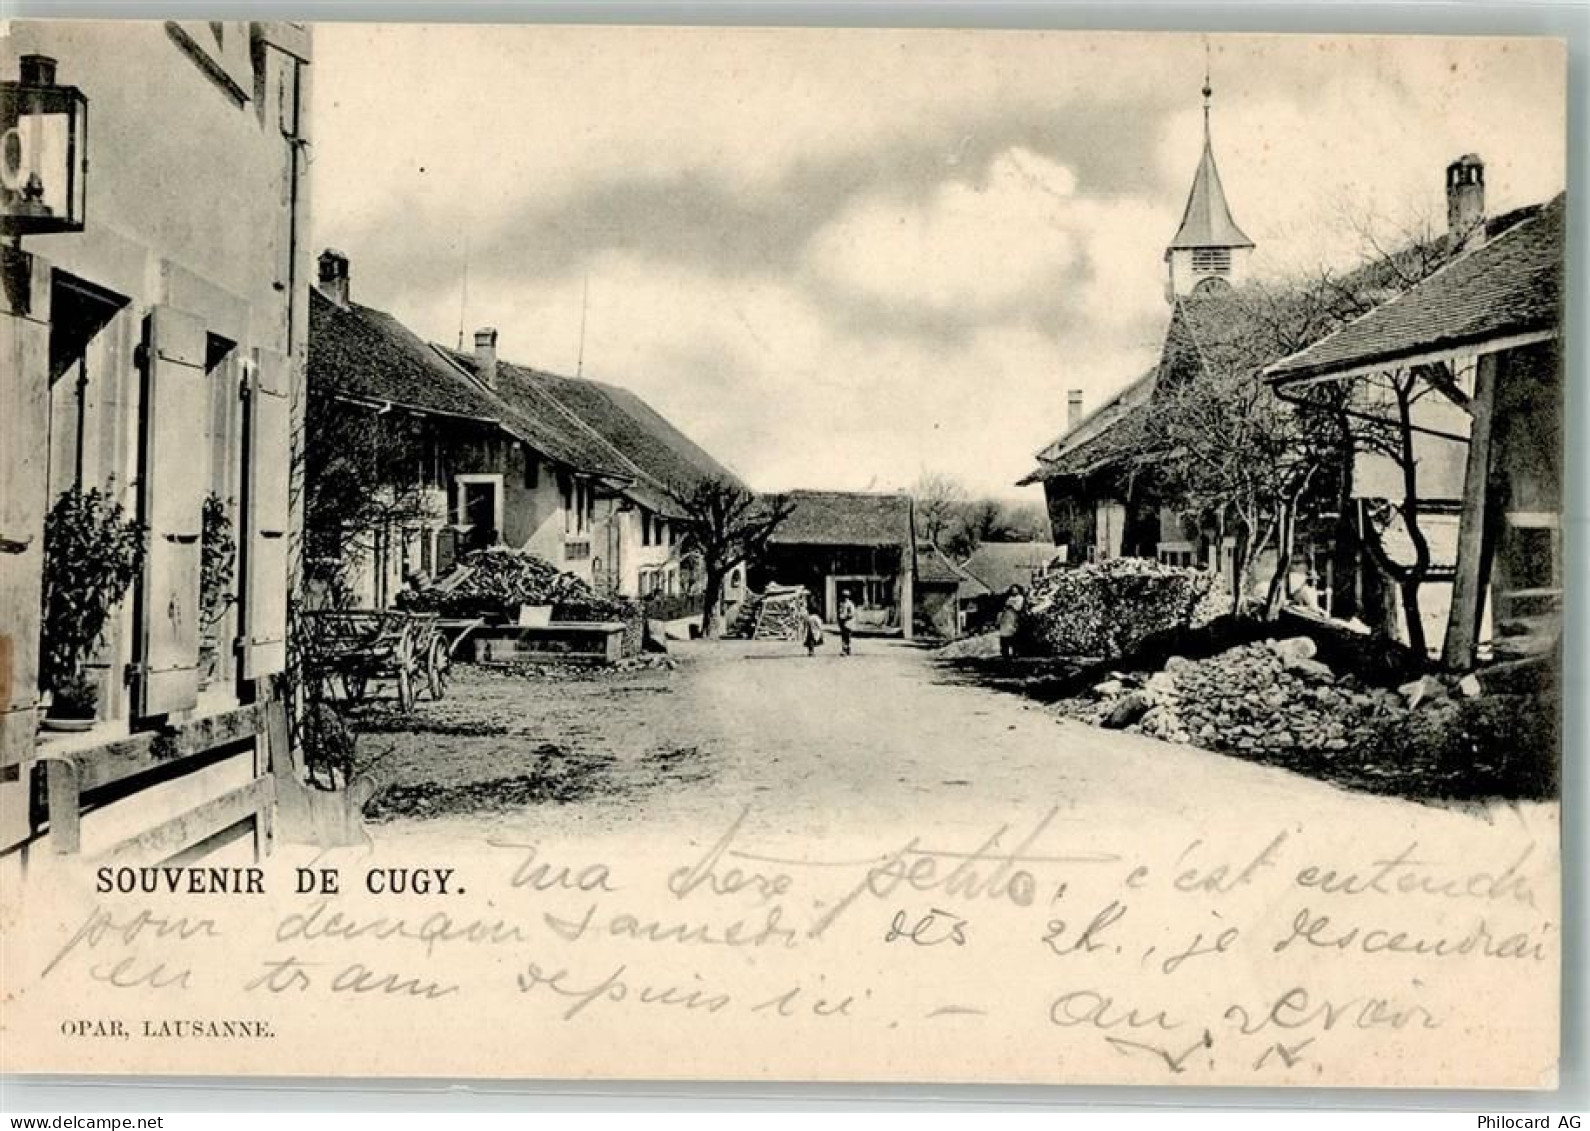 SOUVENIR DE CUGY. Ma chère petite, c'est entendu
pour demain samedi, dès 2h., je descendrai
en tram depuis ici. — Au revoir
OPAR, LAUSANNE.
Philocard AG